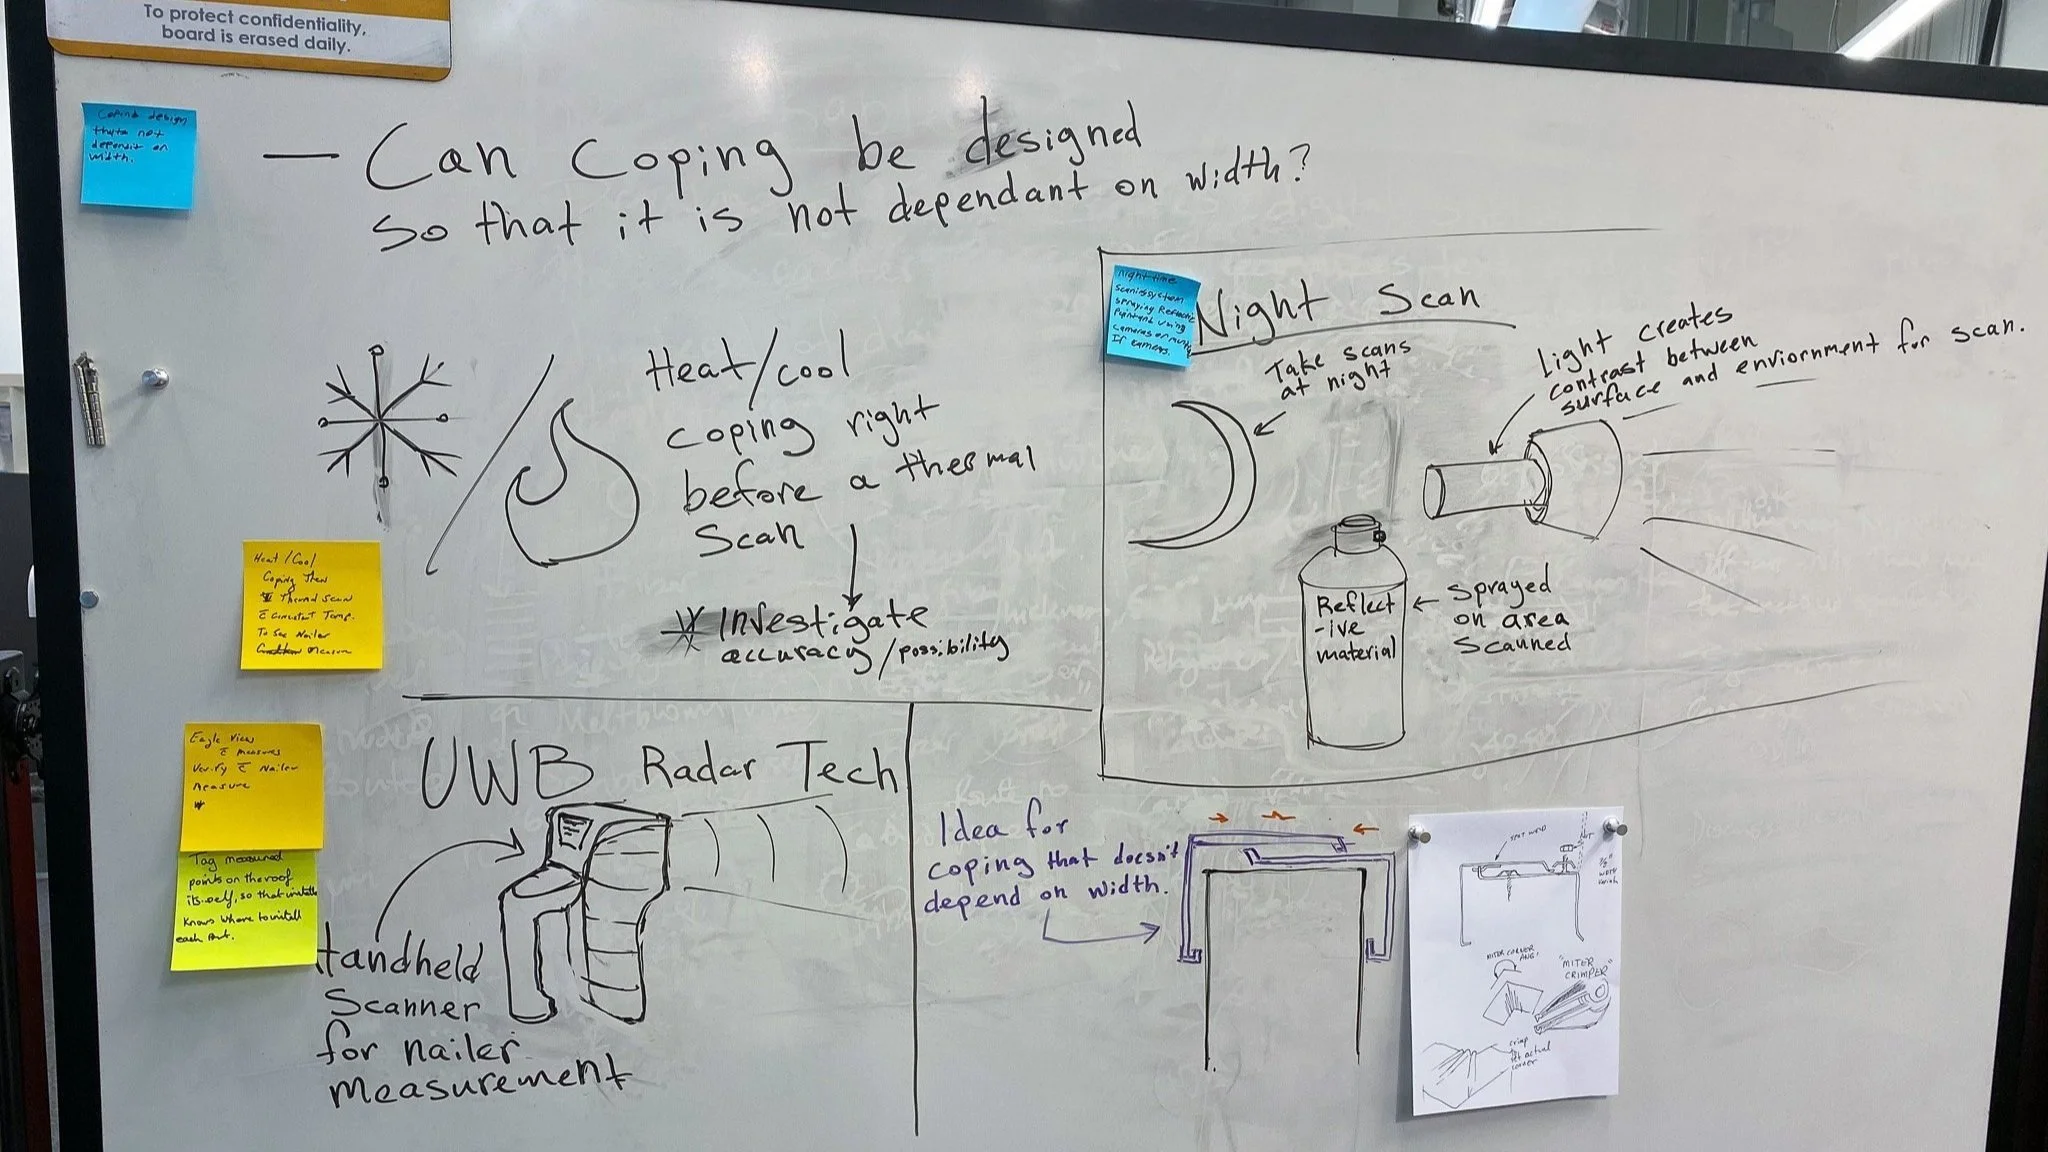 To protect confidentiality,
board is erased daily.
Coping design
thats not
dependit on
width.
— Can Coping be designed
so that it is not dependant on width?
Heat/cool
coping right
before a thermal
scan
Investigate
accuracy/possibility
Heat/Cool
Coping Then
Thermal Scan
c̄ Consistent Temp.
To See Nailer
Measure
Night time
scaningsystem
spraying Reflective
Paint and using
cameras or multi
If cameras.
Night Scan
Take scans
at night
Light creates
contrast between
surface and enviornment for scan.
Reflect
-ive
material
sprayed
on area
scanned
Eagle View
c̄ Measures
Verify c̄ Nailer
Measure
Tag measured
points on the roof
its self, so that installer
knows where to install
each Part.
UWB Radar Tech
Handheld
Scanner
for nailer
measurement
Idea for
coping that doesn't
depend on width.
MITER CORNER
ANG!
"MITER
CRIMPER"
crimp
to
fit actual
corner